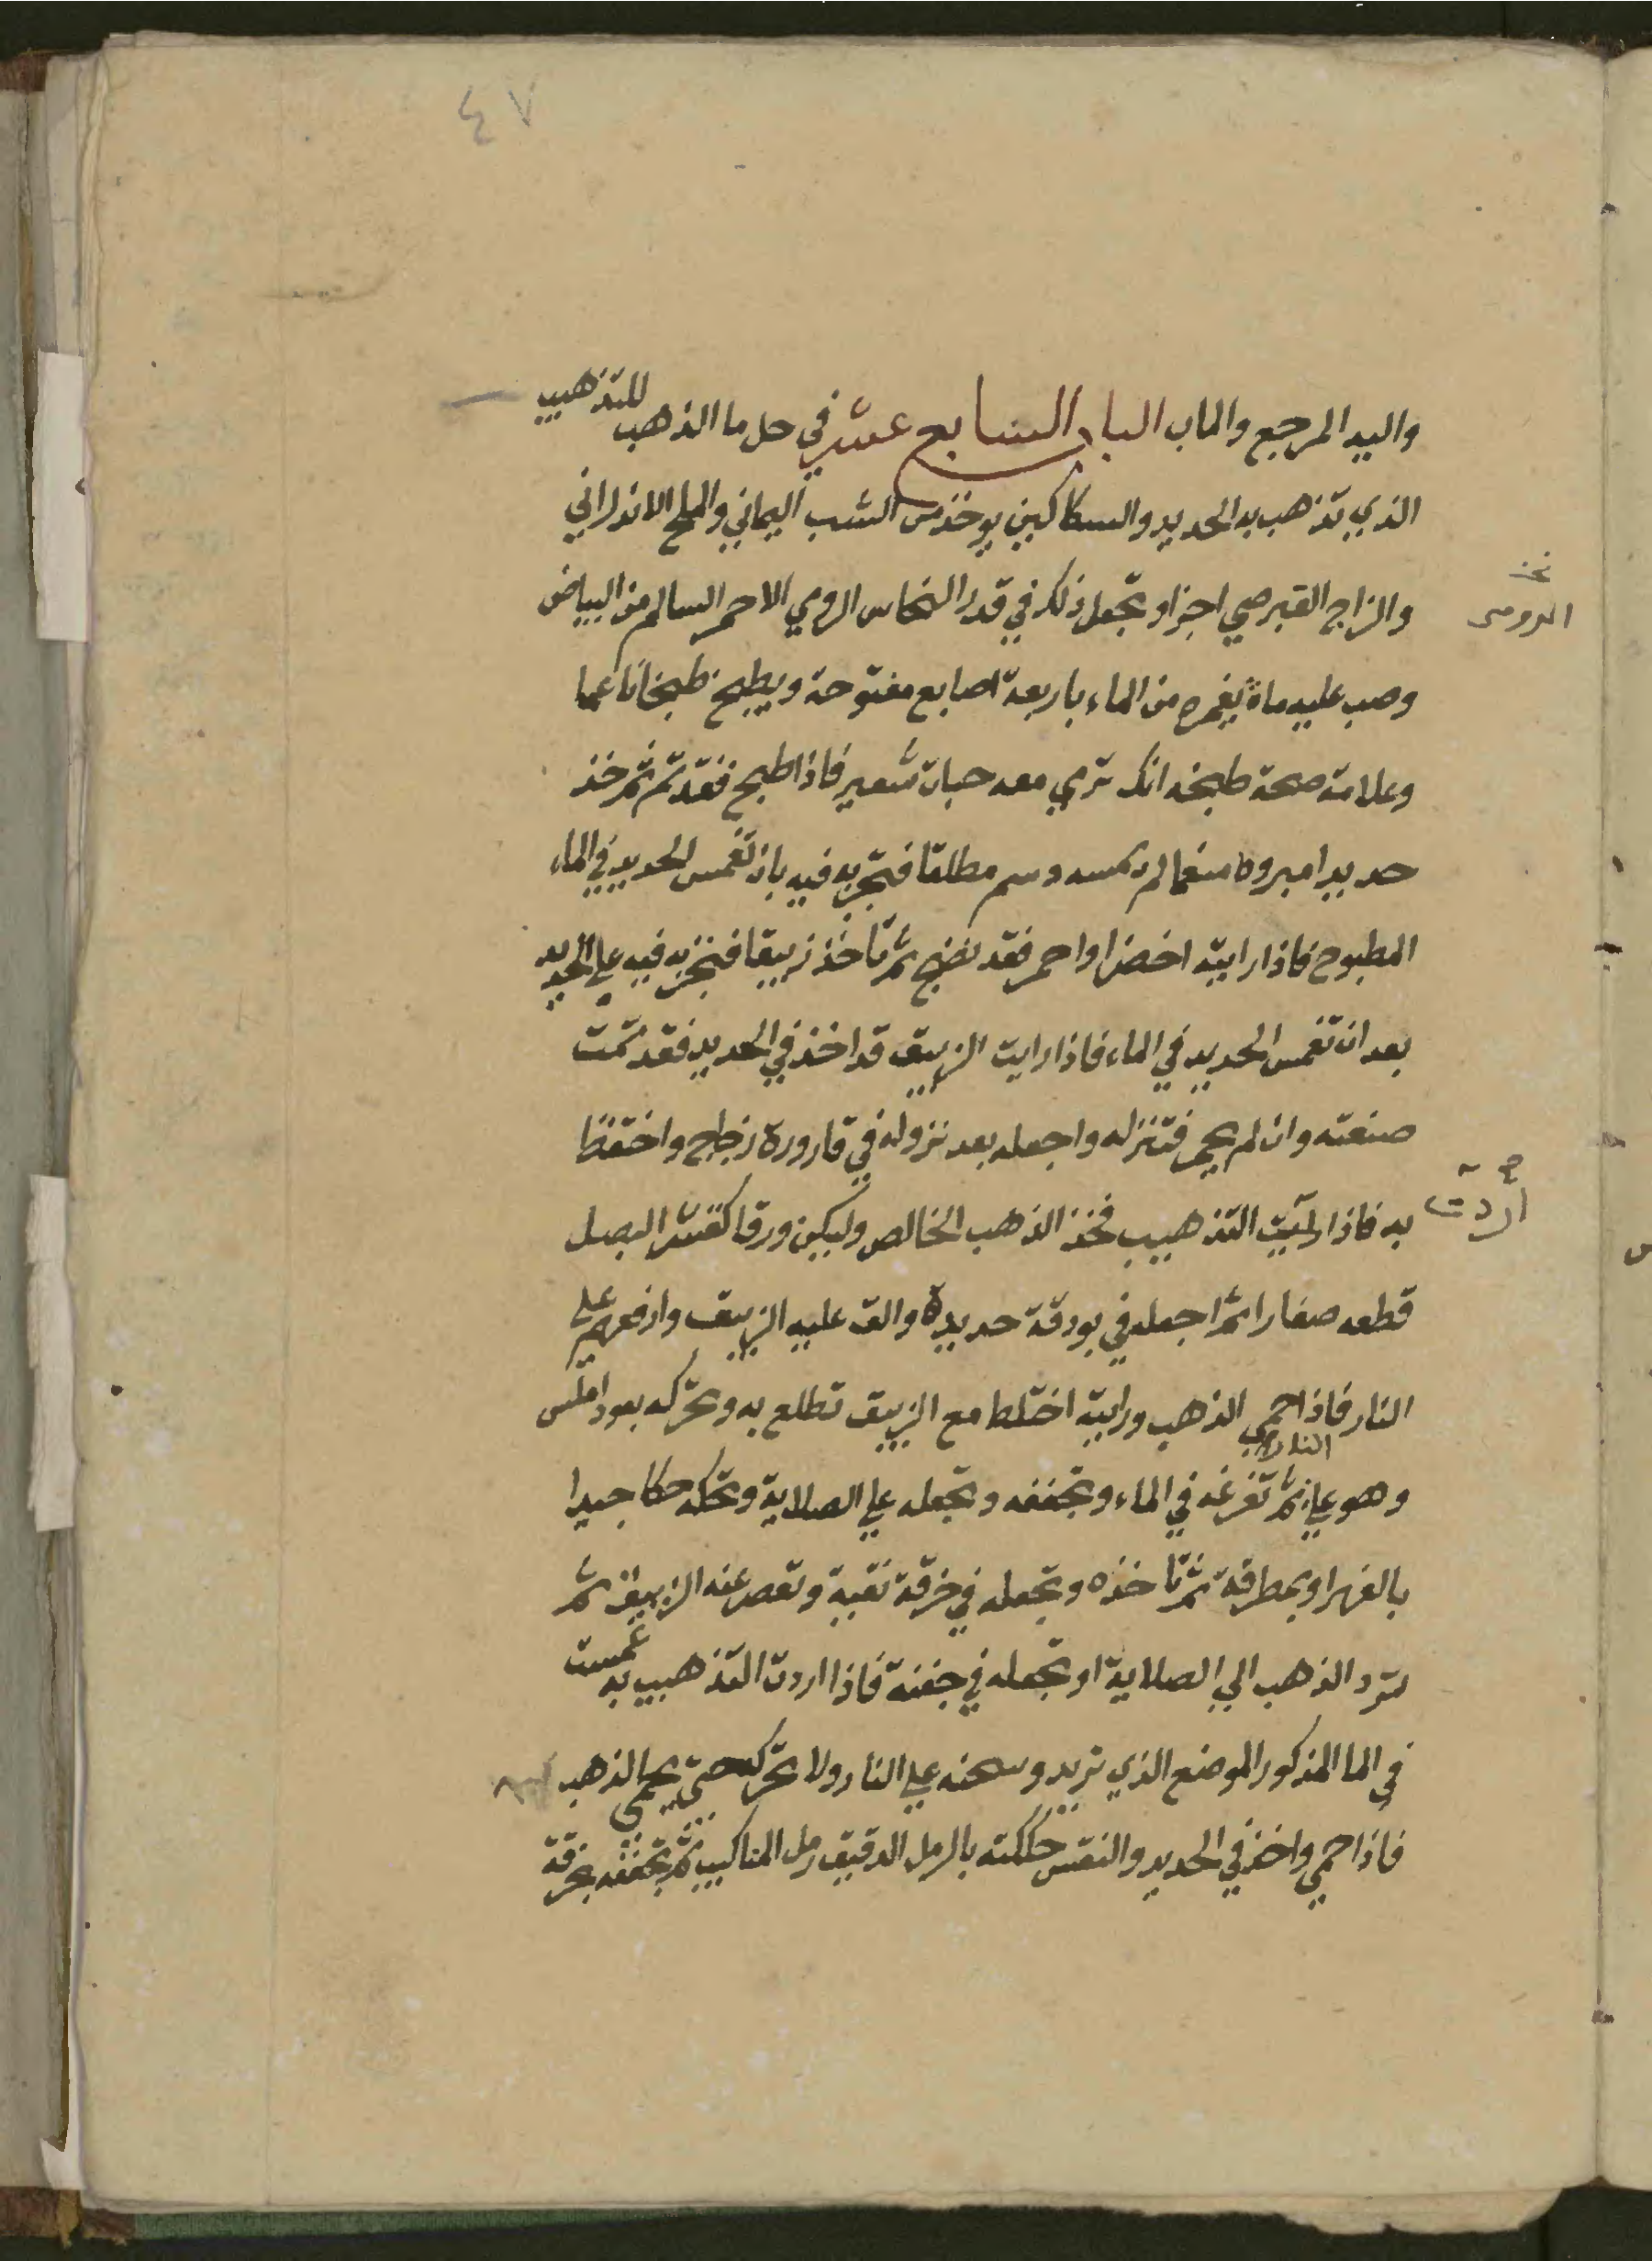 ٤٧
واليه المرجع والماب الباب السابع عشر في حل ما الذهب للتذهيب
الذي تذهب به الحديد والسكاكين يوخذ من الشب اليماني والملح الاندراني
والزاج القبرصي اجزا وتجعل ذلك في قدر النحاس الرومي الاحمر السالم من البياض
الرومي
وصب عليه ماة يغمره من الماء باربعة اصابع مفتوحة ويطبخ طبخا ناعما
وعلامة صحة طبخه انك ترمي معه حبات شعير فاذا طبخ فقد تم ثم خذ
حديدا مبرودا لم يمسه دسم مطلقا فتجربه فيه بان تغمس الحديد في الماء
المطبوخ فاذا رايته اخضر او احمر فقد نضج ثم تاخذ زيبقا فتجربه فيه على الحديد
بعد ان تغمس الحديد في الماء فاذا رايت الزيبق قد اخذ في الحديد فقد تمت
صنعته وان لم يحمر فتنزله واجعله بعد نزوله في قارورة زجاج واحتفظ
به فاذا التذهيب فخذ الذهب الخالص وليكن ورقا كقشر البصل
أردت
قطعه صغارا ثم اجعله في بودقة حديدة والق عليه الزيبق وارفعهم على
النار فاذا حمي الذهب ورايته اختلط مع الزيبق تطلع به وتحركه بعود املس
وهو على النار ثم تفرغه في الماء وتجففه وتجعله على الصلاية وتحكه حكا جيدا
بالفهر او بمطرقة ثم تاخذه وتجعله في خرقة نقية وتعصر عنه الزيبق ثم
ترد الذهب الي الصلاية او تجعله في جفنة فاذا اردت التذهيب به غمست
في الما المذكور الموضع الذي تريد وسخنه على النار ولا تحركه حتى يحمي الذهب
فاذا حمي واخذ في الحديد والنقش حككته بالرمل الدقيق رمل المناكيب ثم تجففه بخرقة